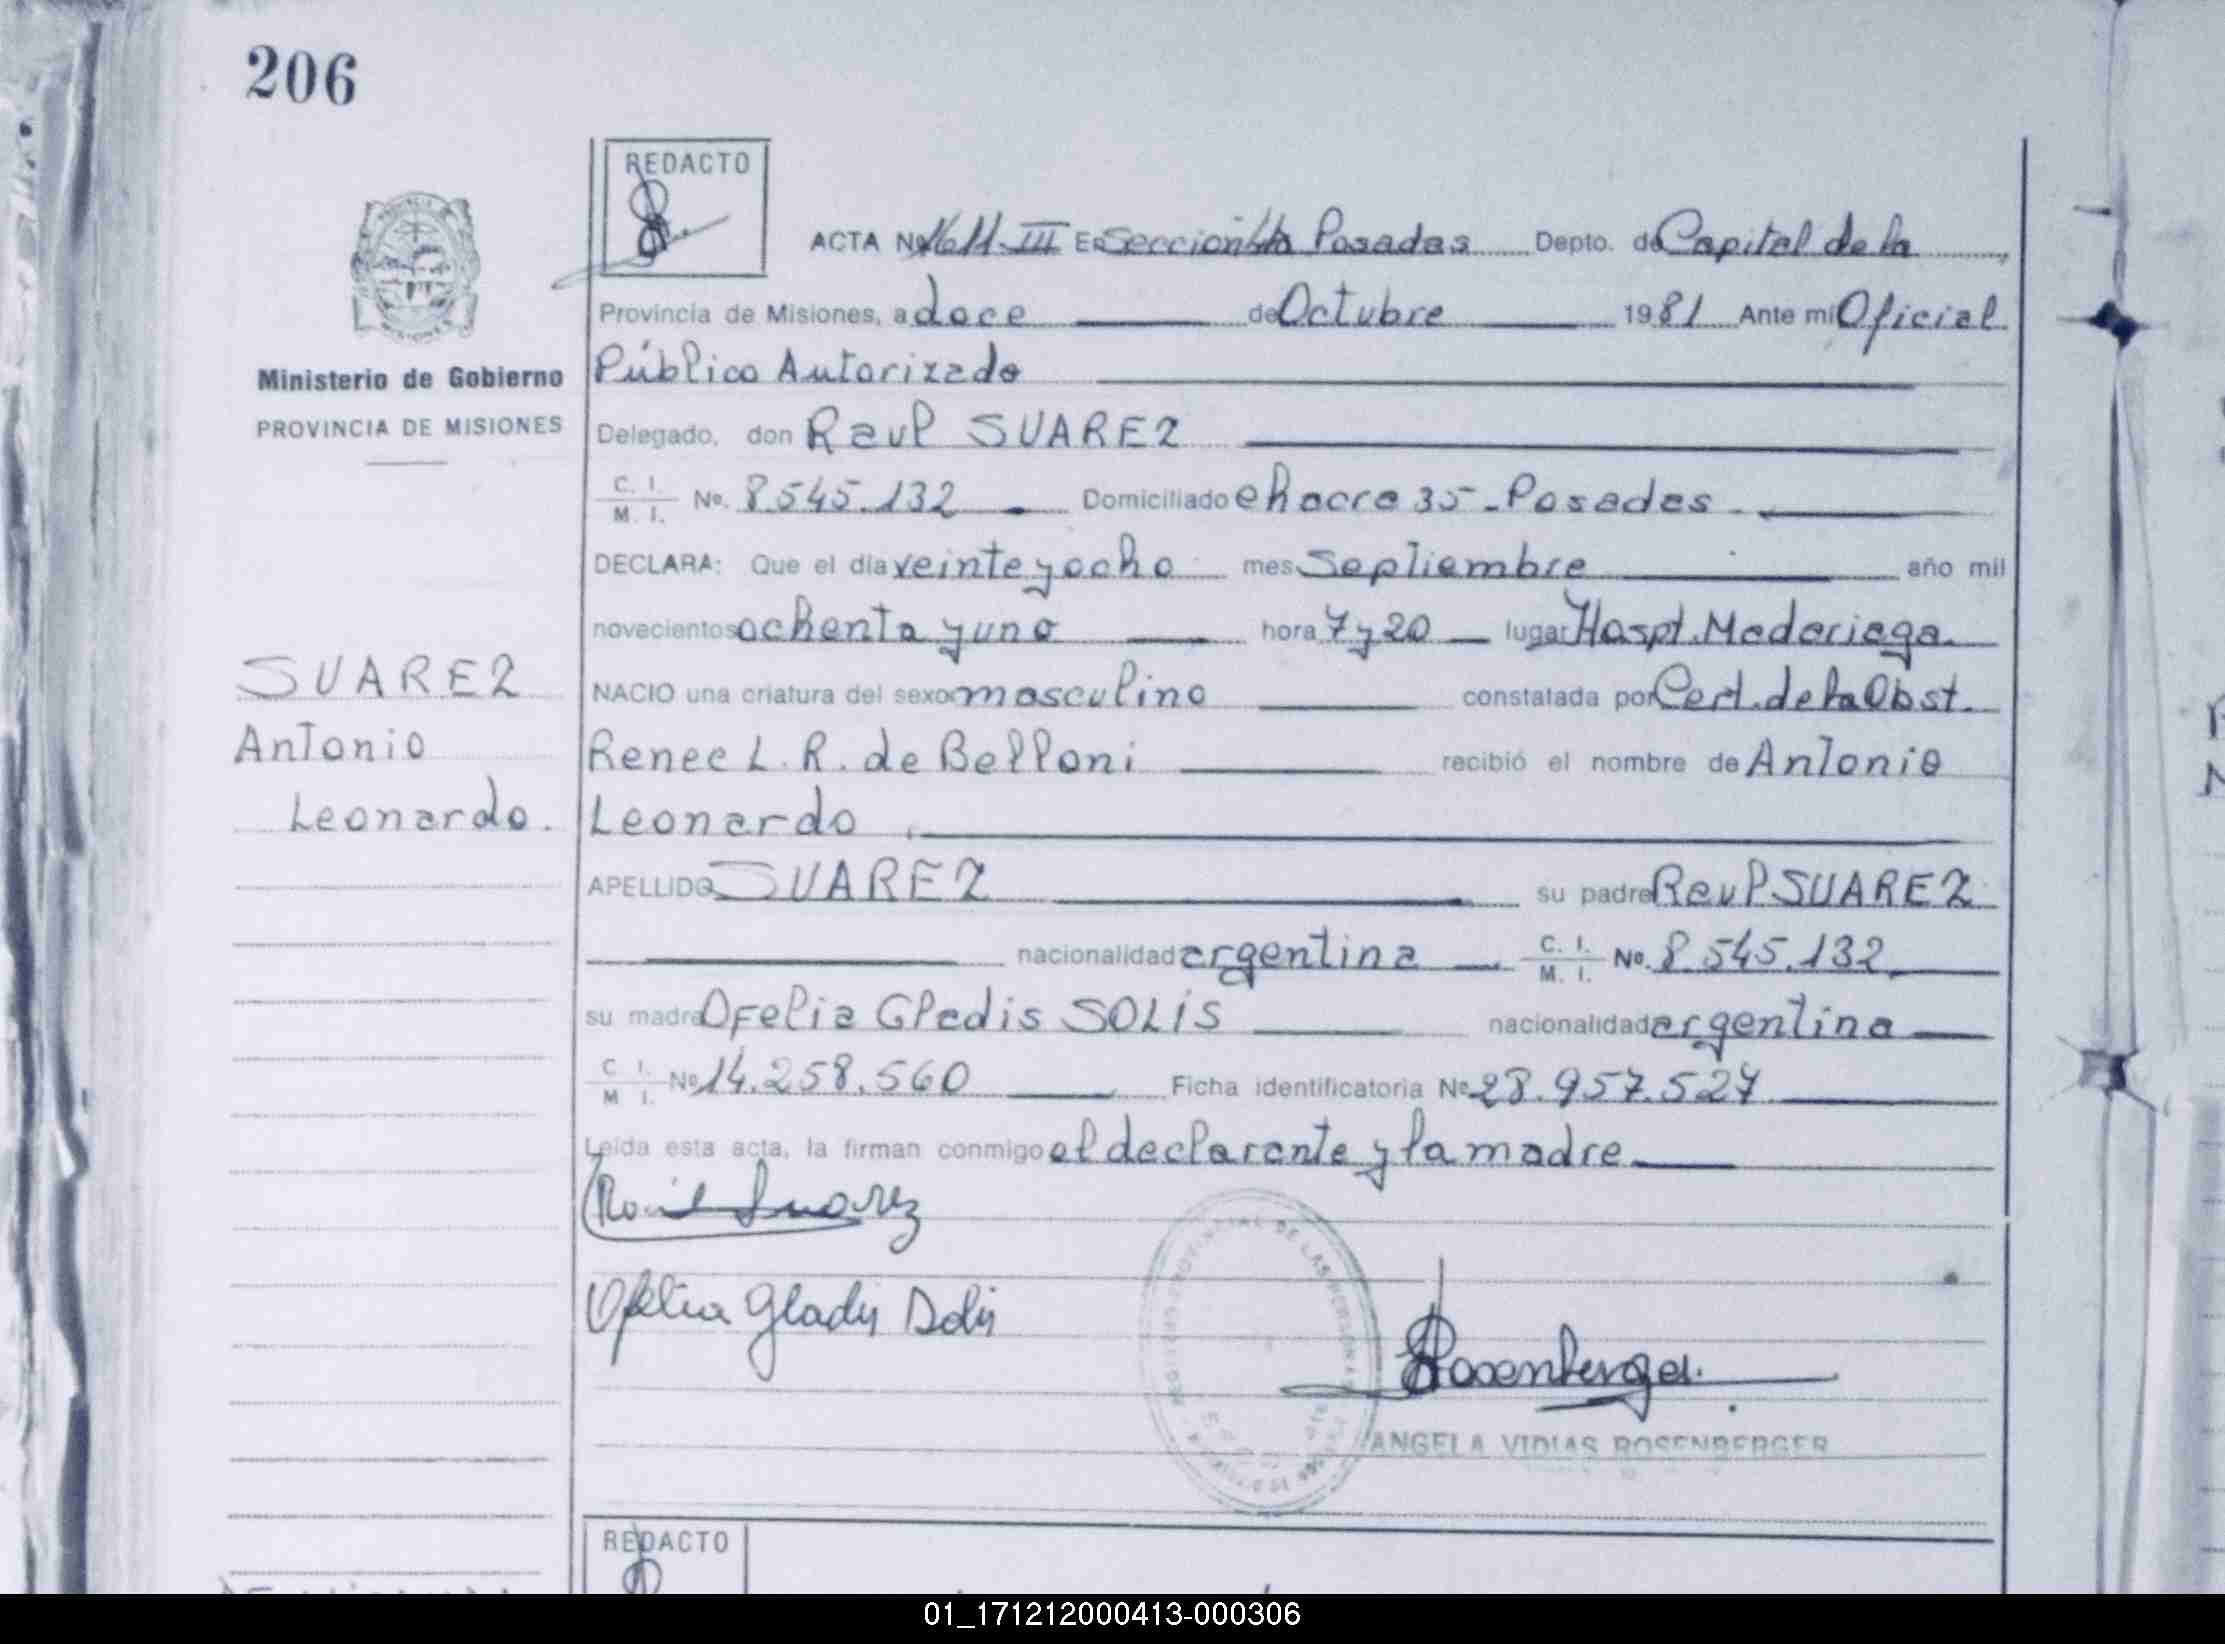 206
REDACTO
ACTA No 1611-III En Sección 1ra Posadas Depto. de Capital de la
Provincia de Misiones, a doce de Octubre 1981 Ante mi Oficial
Ministerio de Gobierno
PROVINCIA DE MISIONES
Público Autorizado
Delegado, don Raul SUAREZ
C. I.
M. I. No. 8.545.132 Domiciliado chacra 35 - Posadas
DECLARA: Que el día veinte y ocho mes Septiembre año mil
novecientos ochenta y uno hora 7 y 20 lugar Hospt. Madariaga.
NACIO una criatura del sexo masculino constatada por Cert. de la Obst.
Renee L. R. de Belloni recibió el nombre de Antonio
Leonardo
SUAREZ
Antonio
Leonardo.
APELLIDO SUAREZ su padre Raul SUAREZ
nacionalidad argentina C. I. M. I. No. 8.545.132
su madre Ofelia Gladis SOLIS nacionalidad argentina
C. I. M. I. No 14.258.560 Ficha identificatoria No 28.957.527
Leída esta acta, la firman conmigo el declarante y la madre
Raul Suarez
Ofelia Gladis Solis
Rosenberger.
ANGELA VIDIAS ROSENBERGER
REDACTO
01_171212000413-000306